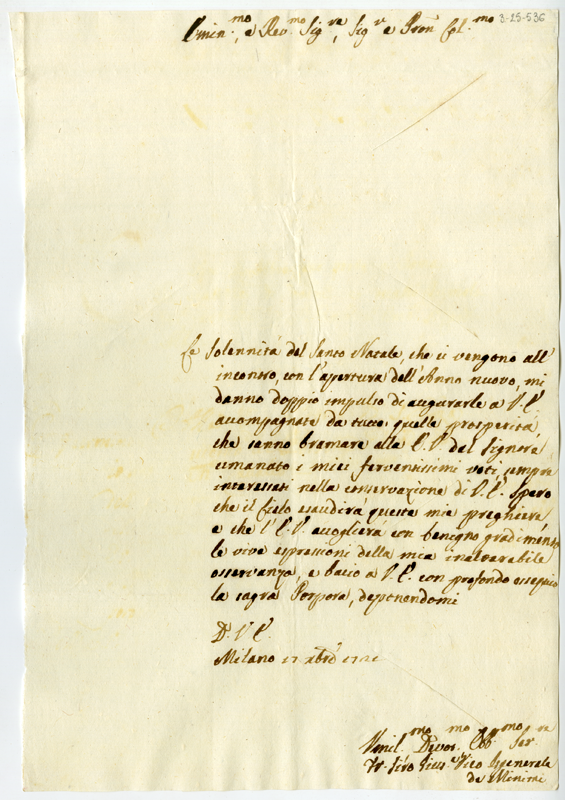 Emin.mo, e Rev.mo Sig.re, Sig.r e Pron Col.mo
3-25-536
Le Solennità del Santo Natale, che ci vengono all'
incontro, con l'apertura dell'Anno nuovo, mi
danno doppio impulso di augurarle a V. E.
accompagnate da tutte quelle prosperità,
che sanno bramare alla E. V. dal Signore
umanato i miei ferventissimi voti, sempre
interessati nella conservazione di V. E. Spero
che il Cielo esaudirà queste mie preghiere,
e che l'E. V. accoglierà con benigno gradimento
le vive espressioni della mia inalterabile
osservanza, e bacio a V. E. con profondo ossequio
la sagra Porpora, deponendomi
D. V. E.
Milano 17 Xbre
Umil.mo Devot.mo Obb.mo Ser.re
Fr. Vico Generale
de Minimi